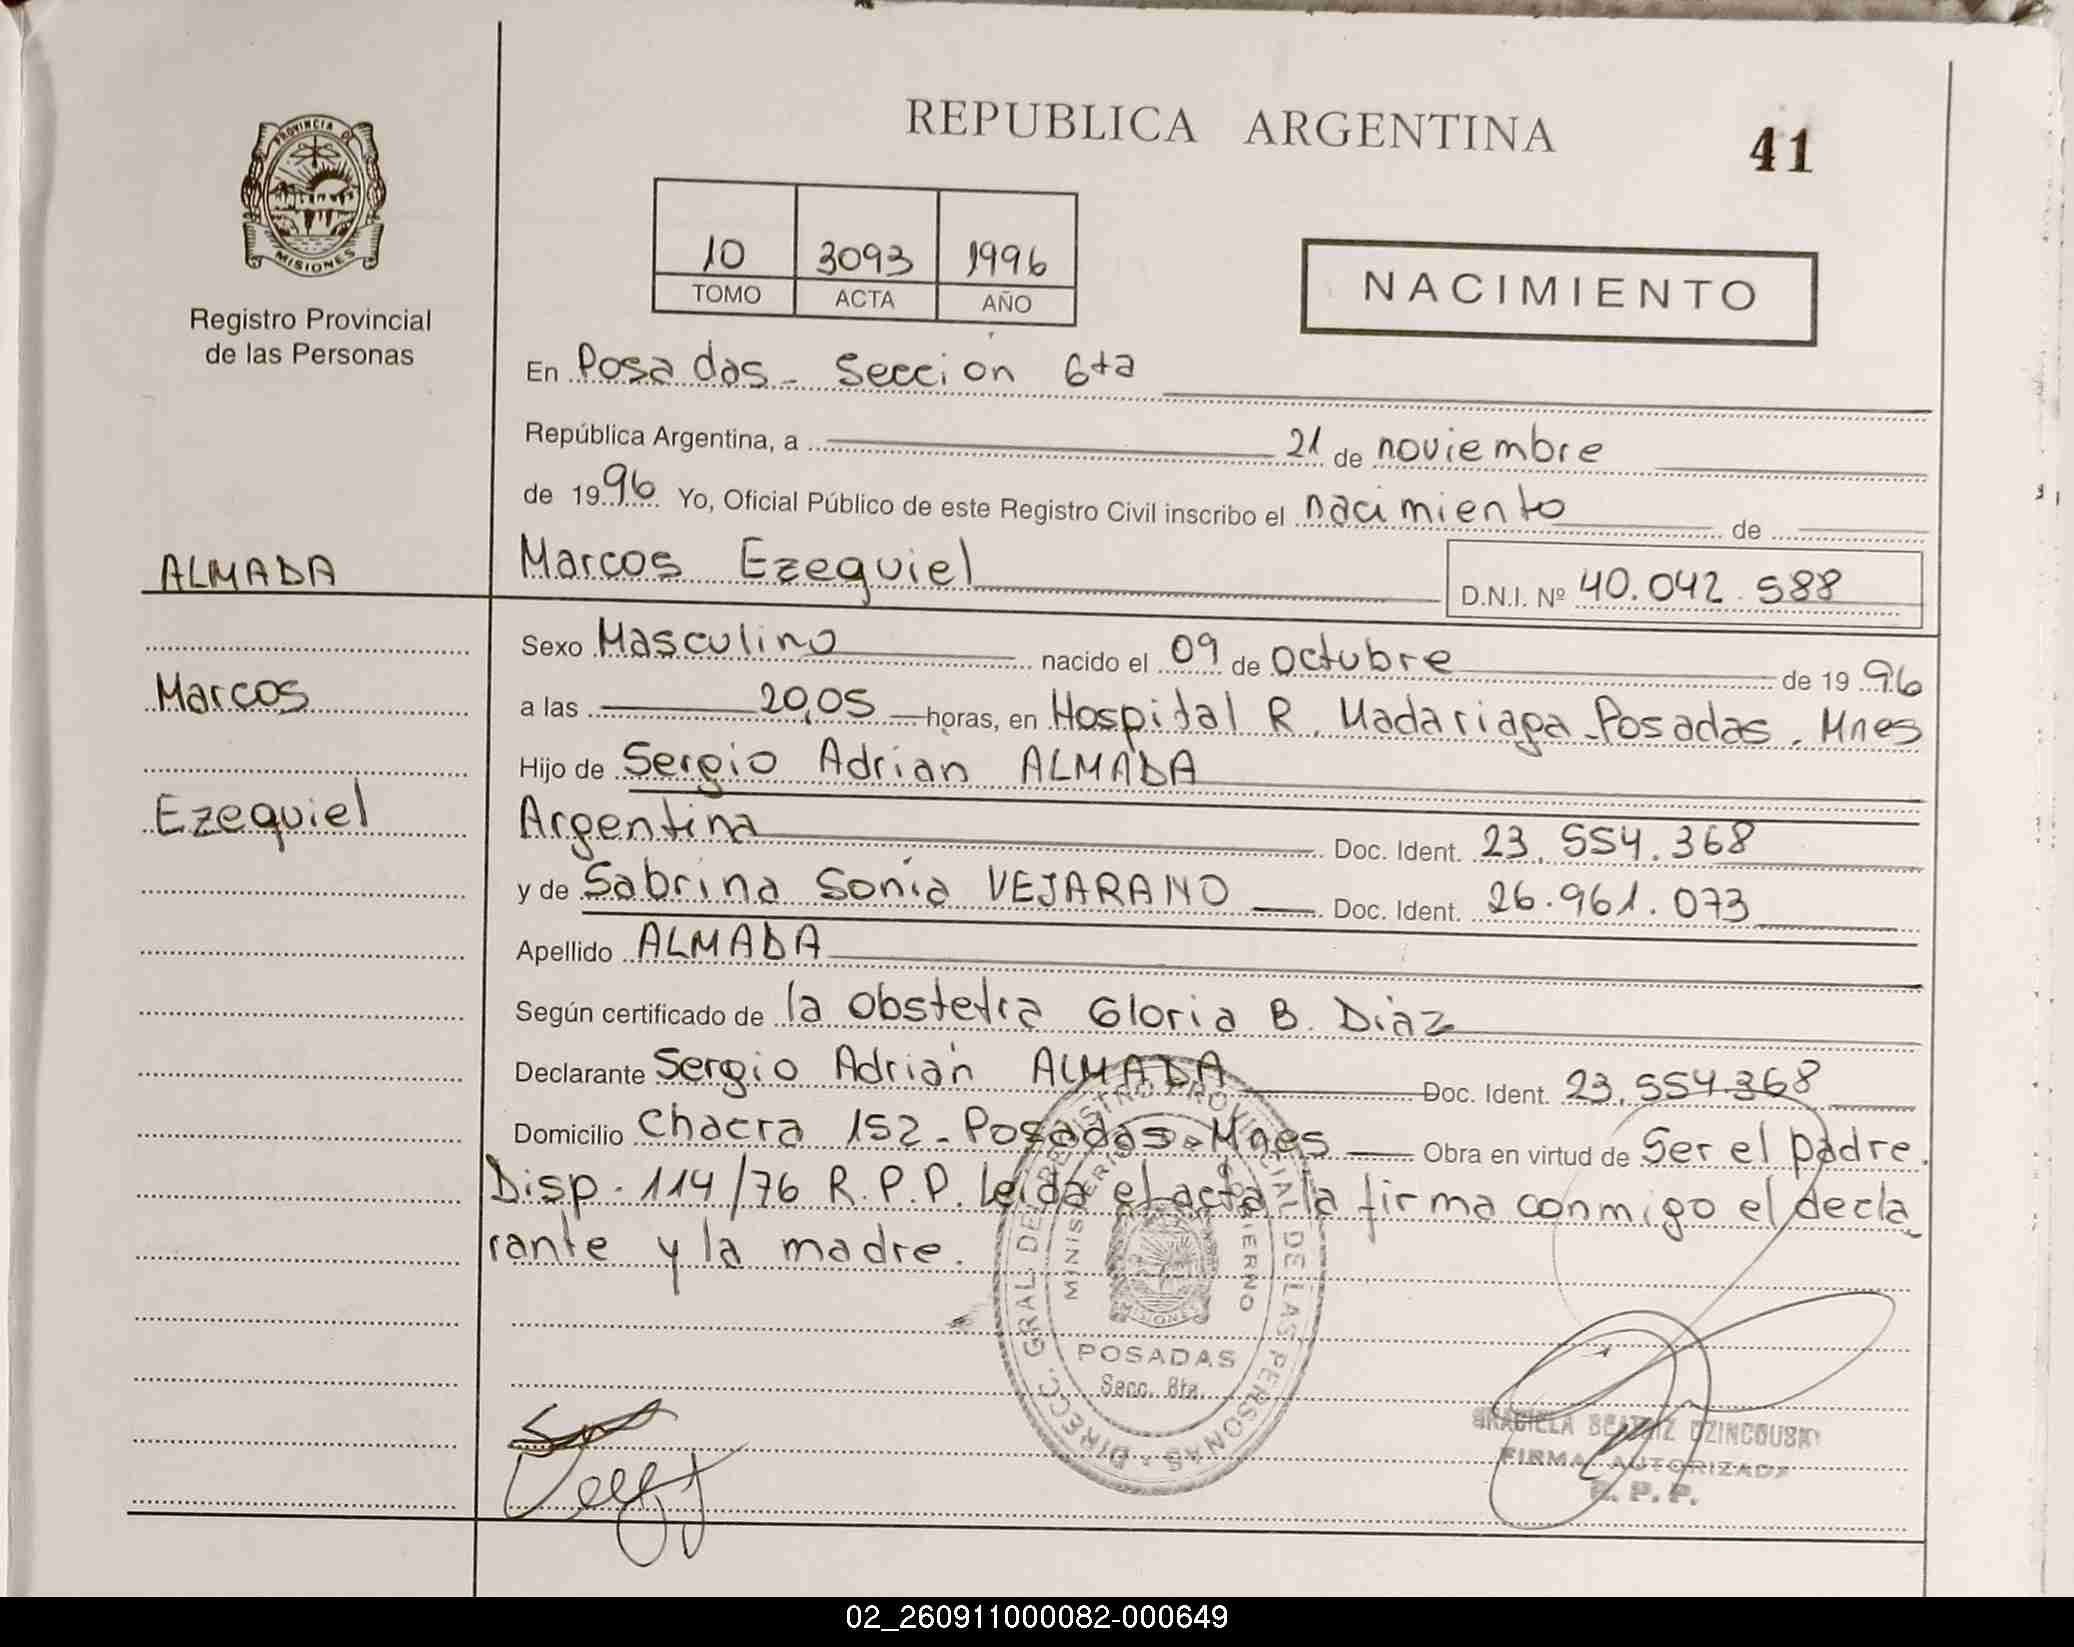 REPUBLICA ARGENTINA
41
PROVINCIA DE
MISIONES
Registro Provincial
de las Personas
10 3093 1996
TOMO ACTA AÑO
NACIMIENTO
En Posadas - Sección 6ta
República Argentina, a 21 de noviembre
de 1996 Yo, Oficial Público de este Registro Civil inscribo el nacimiento de
ALMADA
Marcos Ezequiel
D.N.I. Nº 40.042.588
Sexo Masculino nacido el 09 de octubre de 1996
Marcos
a las 20,05 horas, en Hospital R. Madariaga - Posadas. Mnes
Hijo de Sergio Adrian ALMADA
Ezequiel
Argentina Doc. Ident. 23.554.368
y de Sabrina Sonia VEJARANO Doc. Ident. 26.961.073
Apellido ALMADA
Según certificado de la obstetra Gloria B. Diaz
Declarante Sergio Adrián ALMADA Doc. Ident. 23.554.368
Domicilio Chacra 152 - Posadas - Mnes Obra en virtud de Ser el padre.
Disp. 114/76 R.P.P. Leida el acta la firma conmigo el decla
rante y la madre.
DIRECC. GRAL. DEL REGISTRO PROVINCIAL DE LAS PERSONAS
MINISTERIO DE GOBIERNO
MISIONES
POSADAS
Secc.
GRACIELA BEATRIZ
FIRMA AUTORIZADA
R.P.P.
02_260911000082-000649